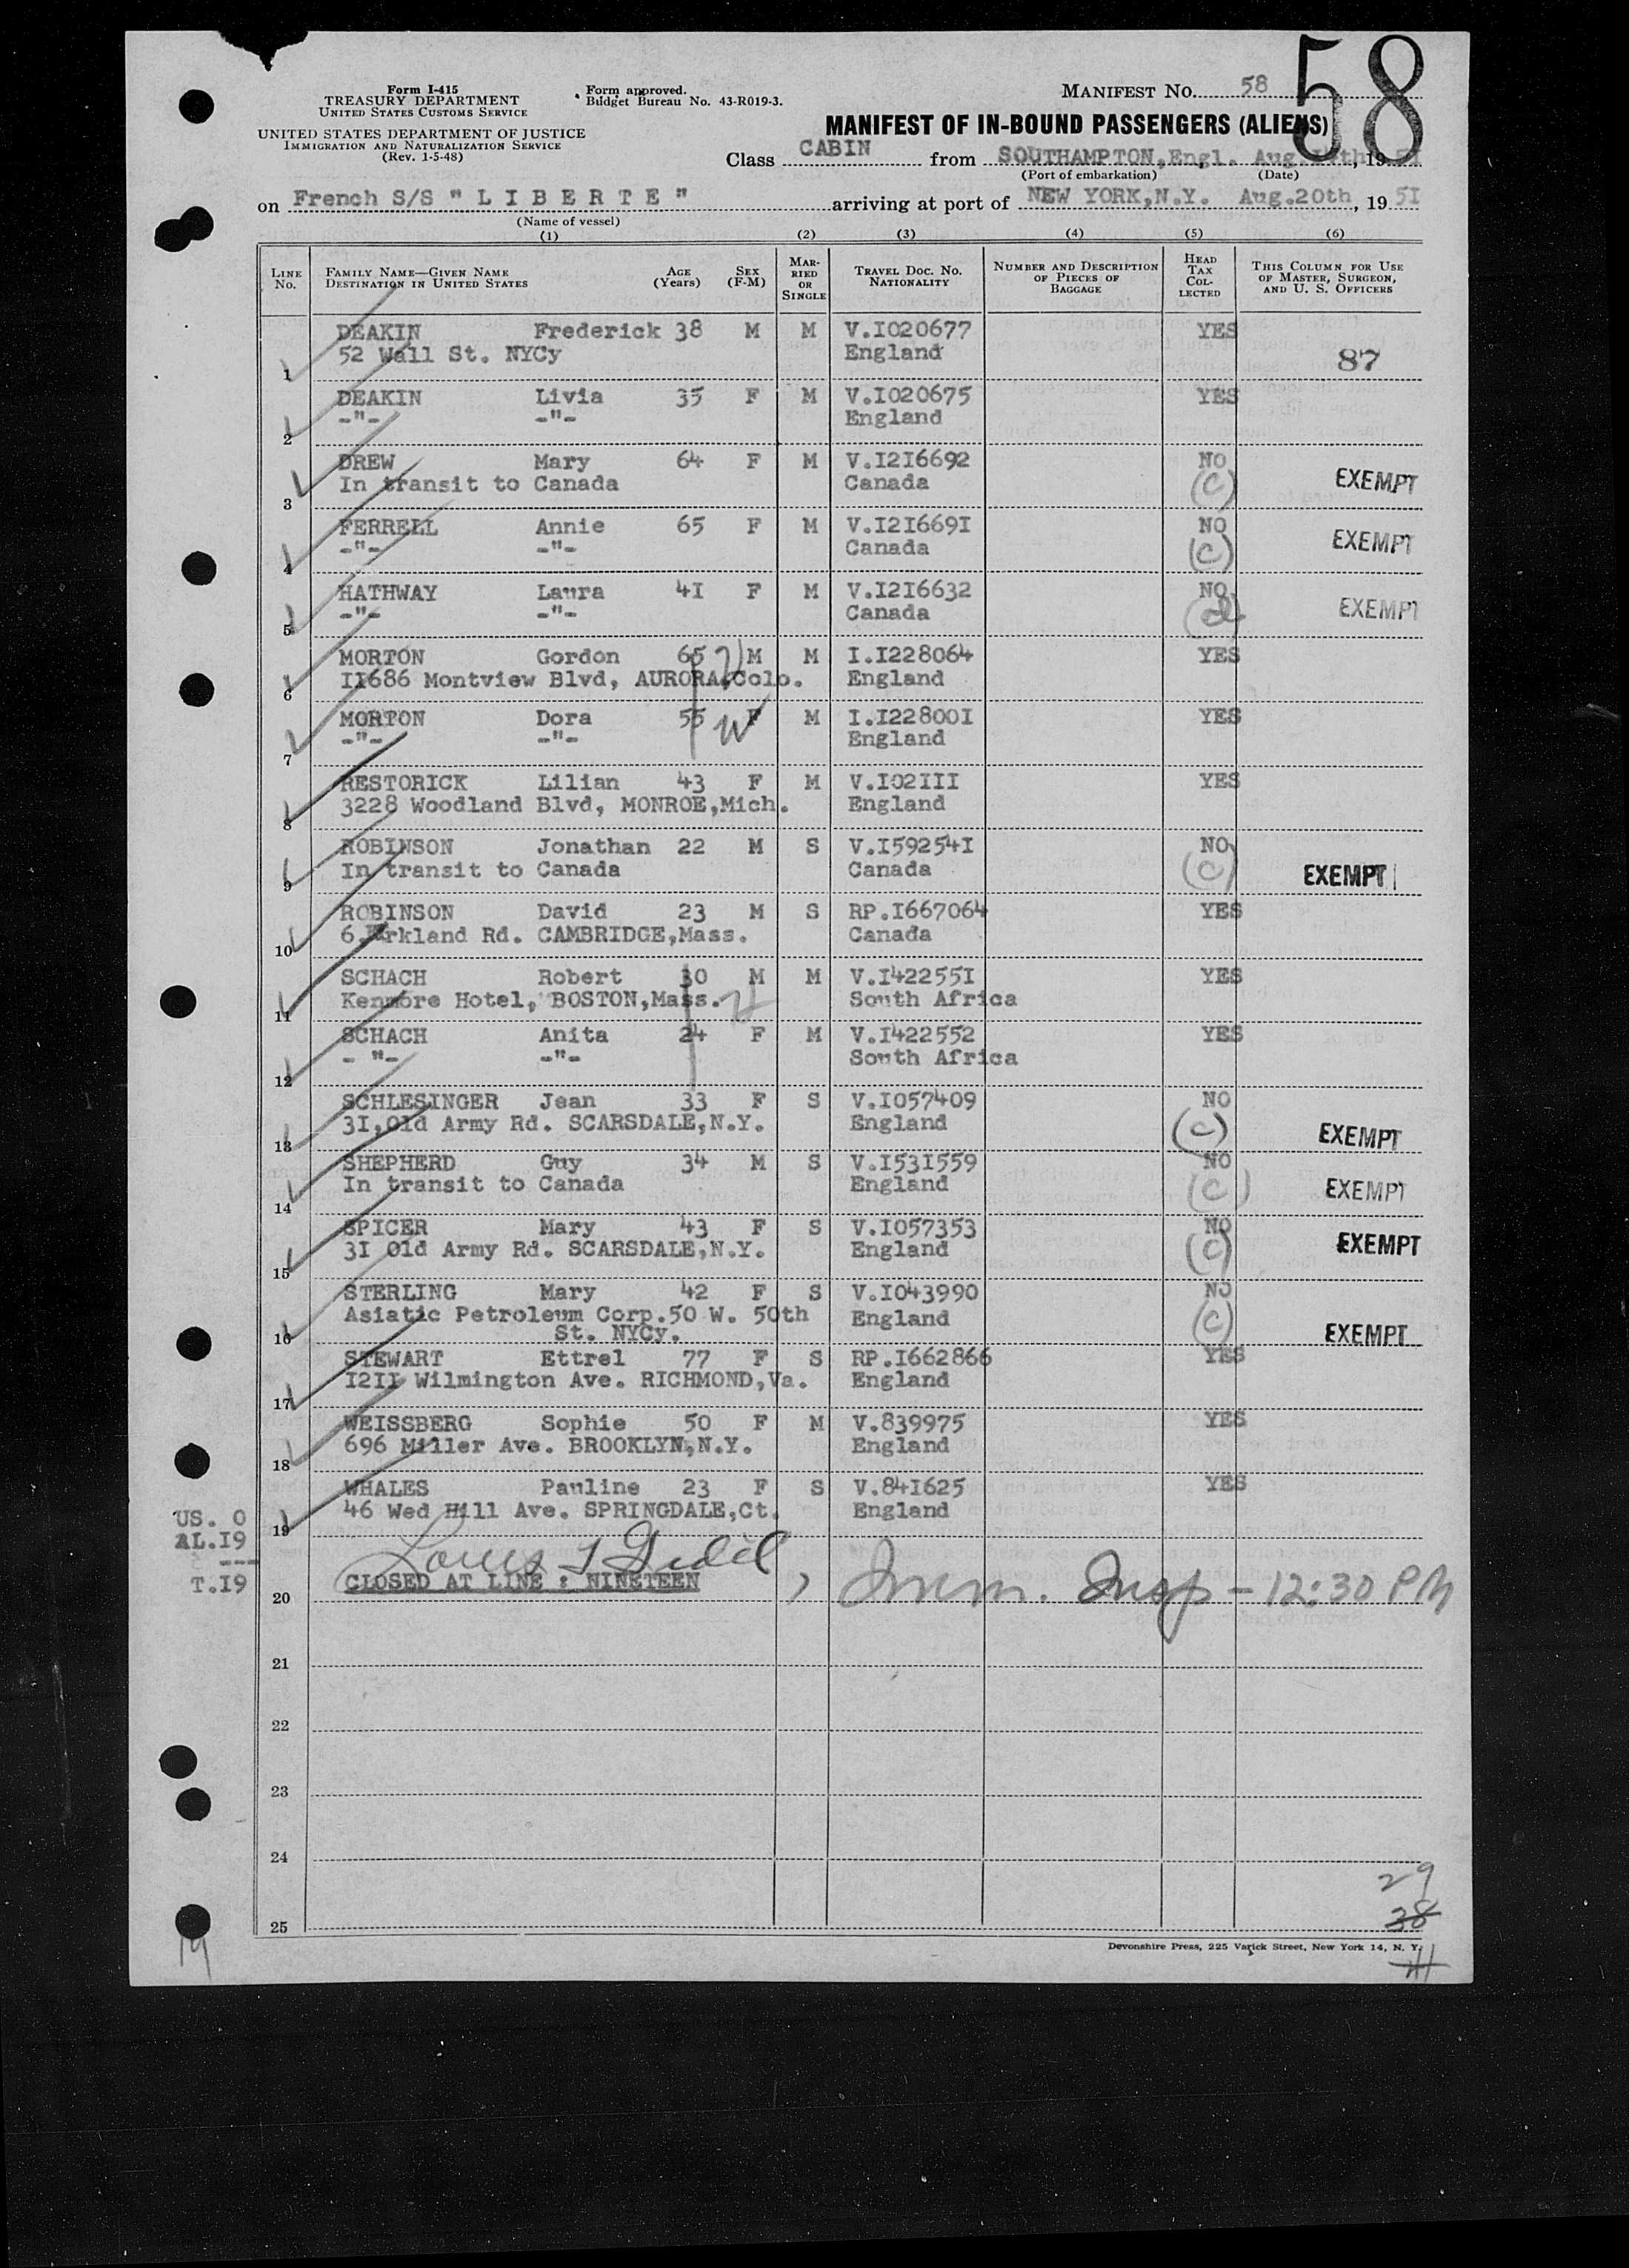 58
Form I-415
TREASURY DEPARTMENT
UNITED STATES CUSTOMS SERVICE
UNITED STATES DEPARTMENT OF JUSTICE
IMMIGRATION AND NATURALIZATION SERVICE
(Rev. 1-5-48)
Form approved.
Budget Bureau No. 43-R019-3.
MANIFEST NO. 58
MANIFEST OF IN-BOUND PASSENGERS (ALIENS)
Class CABIN from SOUTHAMPTON,Engl. Aug. 19 51
(Port of embarkation) (Date)
on French S/S " L I B E R T E " arriving at port of NEW YORK,N.Y. Aug.20th, 19 5I
(Name of vessel)
(1) (2) (3) (4) (5) (6)
LINE NO. FAMILY NAME—GIVEN NAME DESTINATION IN UNITED STATES AGE (YEARS) SEX (F-M) MARRIED OR SINGLE TRAVEL DOC. NO. NATIONALITY NUMBER AND DESCRIPTION OF PIECES OF BAGGAGE HEAD TAX COLLECTED THIS COLUMN FOR USE OF MASTER, SURGEON, AND U. S. OFFICERS
DEAKIN Frederick 38 M M V.I020677 YES
1 52 Wall St. NYCy England 87
DEAKIN Livia 35 F M V.I020675 YES
2 -"- -"- England
DREW Mary 64 F M V.I2I6692 NO
3 In transit to Canada Canada (C) EXEMPT
FERRELL Annie 65 F M V.I2I669I NO
4 -"- -"- Canada (C) EXEMPT
HATHWAY Laura 4I F M V.I2I6632 NO
5 -"- -"- Canada EXEMPT
MORTON Gordon 65 M M I.I228064 YES
6 II686 Montview Blvd, AURORA,Colo. England
MORTON Dora 55 F M I.I22800I YES
7 -"- -"- England
RESTORICK Lilian 43 F M V.I02III YES
8 3228 Woodland Blvd, MONROE,Mich. England
ROBINSON Jonathan 22 M S V.I59254I NO
9 In transit to Canada Canada (C) EXEMPT
ROBINSON David 23 M S RP.I667064 YES
10 6 Kirkland Rd. CAMBRIDGE,Mass. Canada
SCHACH Robert 30 M M V.I42255I YES
11 Kenmore Hotel, BOSTON,Mass. South Africa
SCHACH Anita 24 F M V.I422552 YES
12 - "- -"- South Africa
SCHLESINGER Jean 33 F S V.I057409 NO
13 3I,Old Army Rd. SCARSDALE,N.Y. England (C) EXEMPT
SHEPHERD Guy 34 M S V.I53I559 NO
14 In transit to Canada England (C) EXEMPT
SPICER Mary 43 F S V.I057353 NO
15 3I Old Army Rd. SCARSDALE,N.Y. England (C) EXEMPT
STERLING Mary 42 F S V.I043990 NO
Asiatic Petroleum Corp.50 W. 50th England (C)
16 St. NYCy. EXEMPT
STEWART Ettrel 77 F S RP.I662866 YES
17 I2II Wilmington Ave. RICHMOND,Va. England
WEISSBERG Sophie 50 F M V.839975 YES
18 696 Miller Ave. BROOKLYN,N.Y. England
WHALES Pauline 23 F S V.84I625 YES
19 46 Wed Hill Ave. SPRINGDALE,Ct. England
US. 0
AL.I9
---
T.I9
Louis
20 CLOSED AT LINE : NINETEEN , Imm. Insp - 12:30 PM
21
22
23
24
29
38
25
19
Devonshire Press, 225 Varick Street, New York 14, N. Y.